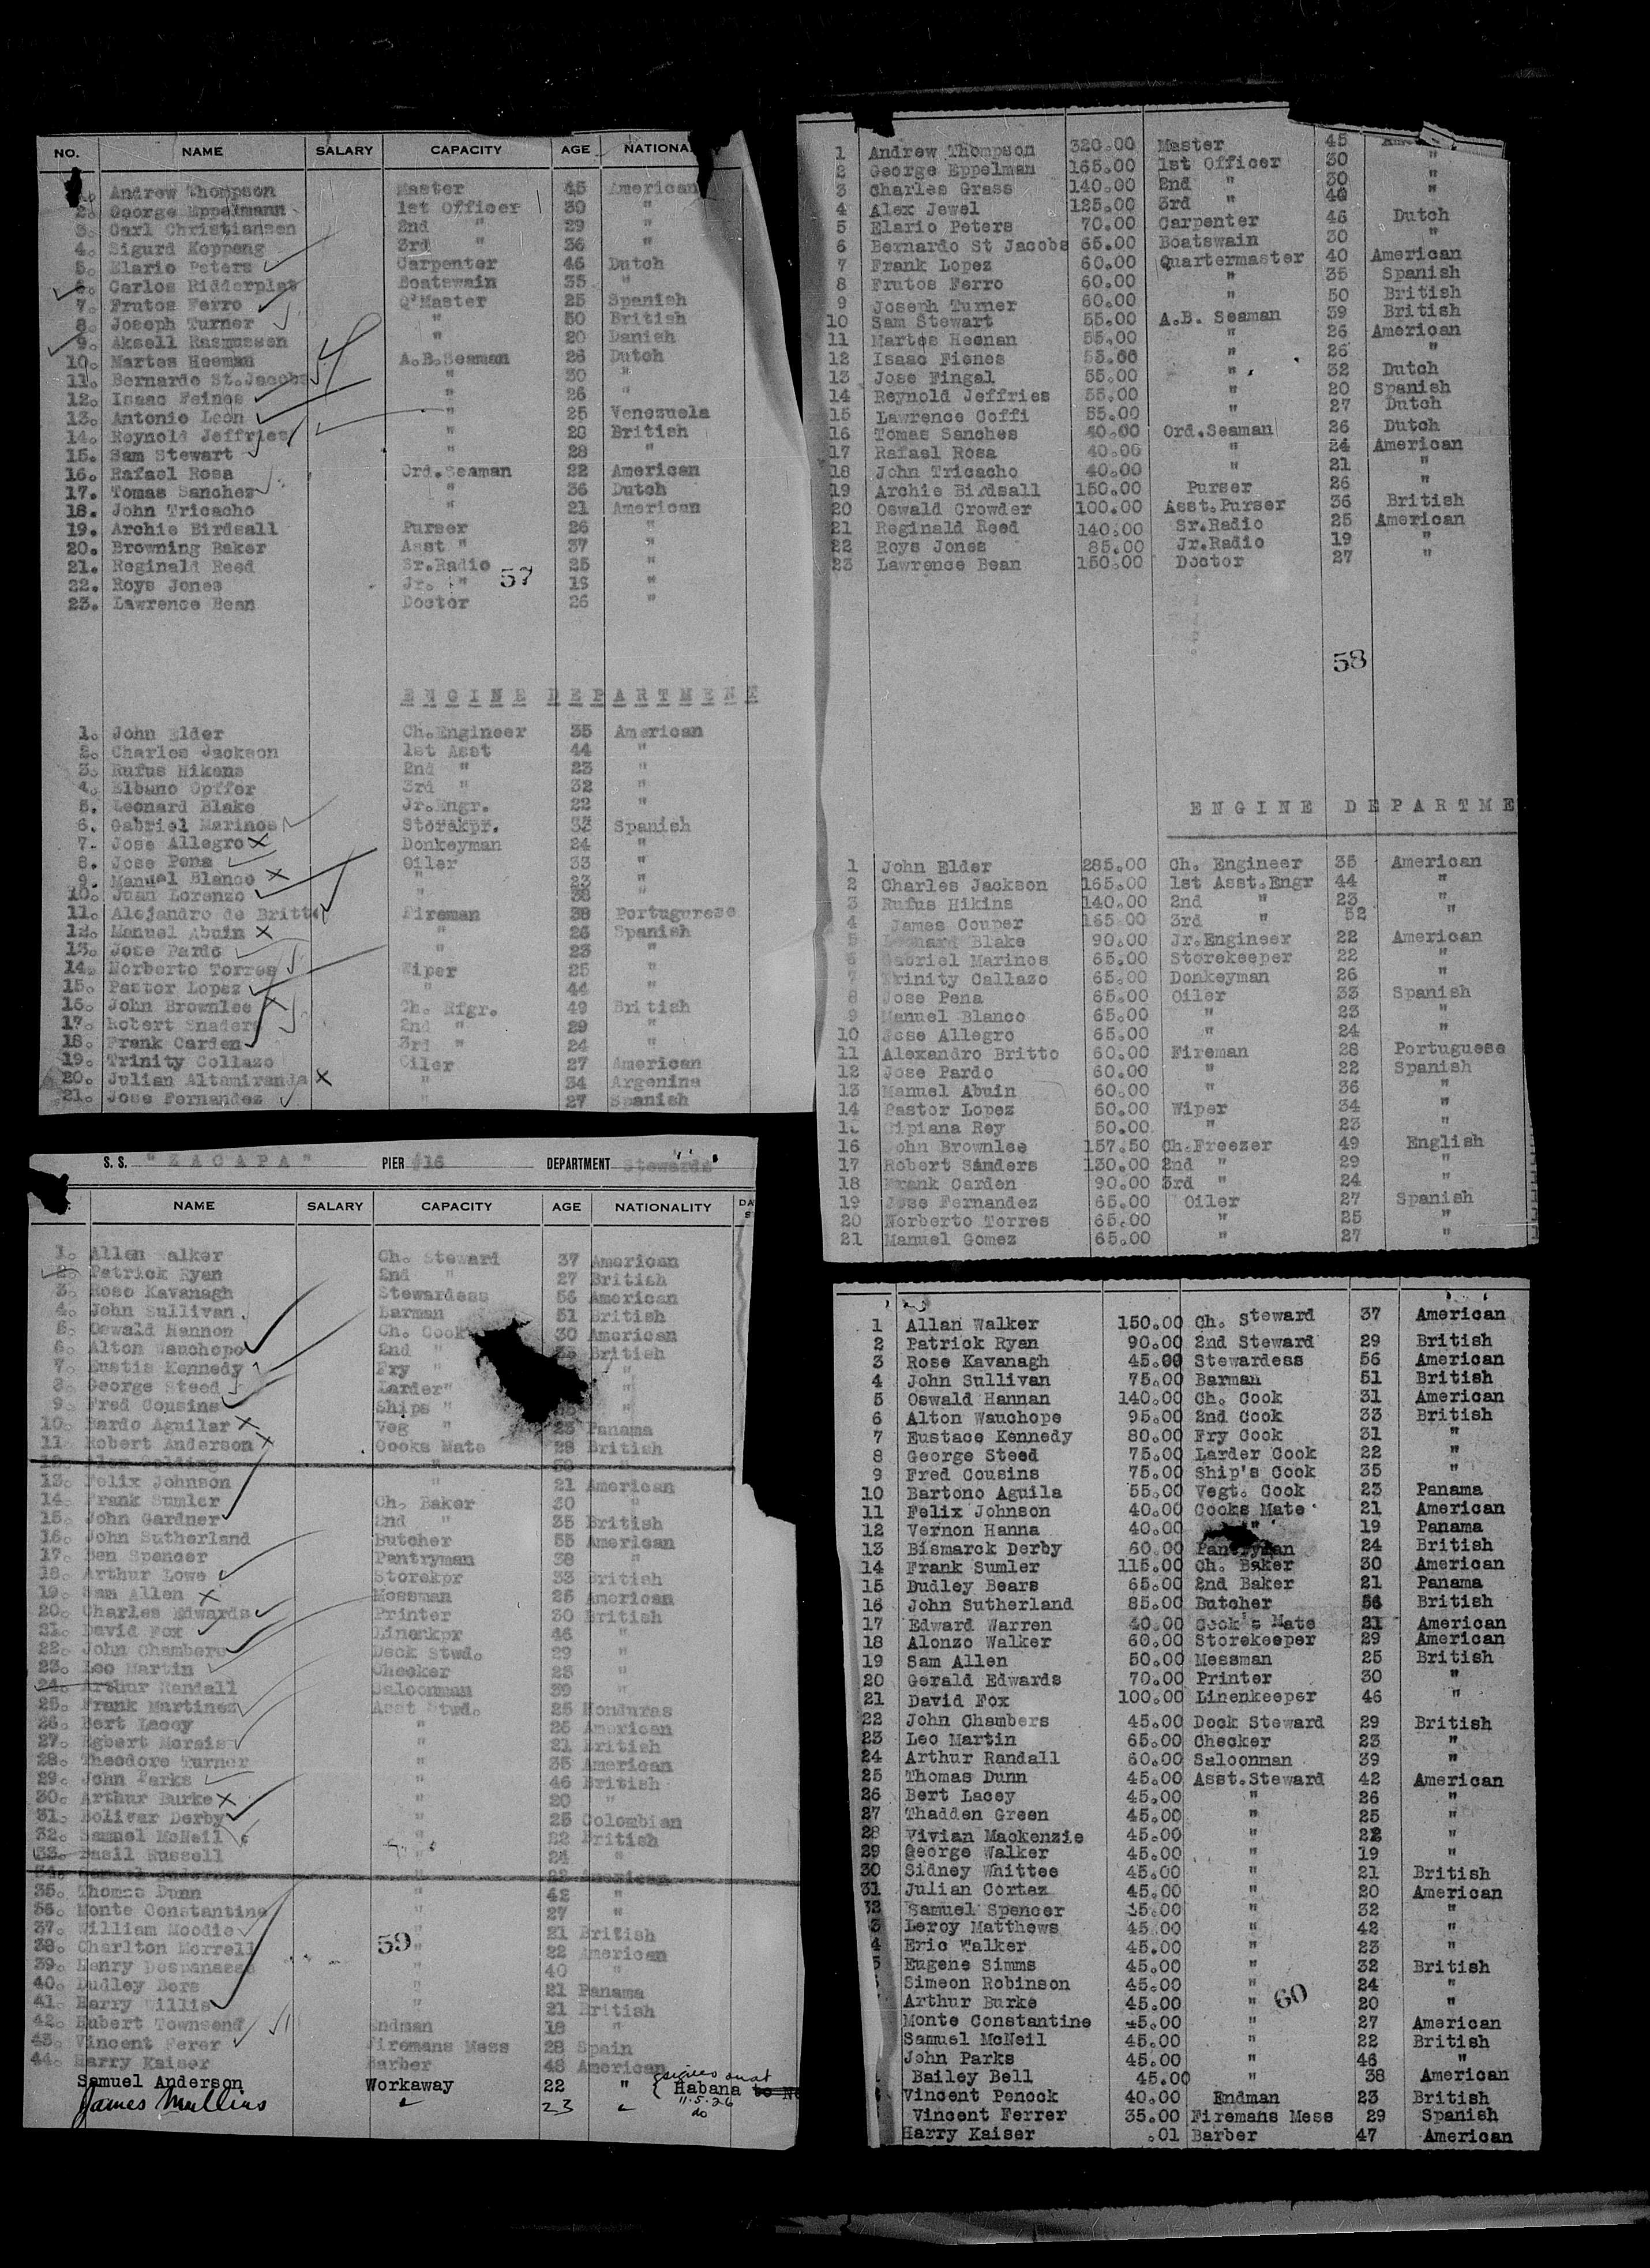 NO. NAME SALARY CAPACITY AGE NATIONA
1. Andrew Thompson Master 45 American
2. George Eppelmann 1st Officer 30 "
3. Carl Christiansen 2nd " 29 "
4. Sigurd Koppeng 3rd " 36 "
5. Elario Peters Carpenter 46 Dutch
6. Carlos Ridderplat Boatswain 35 "
7. Frutos Ferro Q'Master 25 Spanish
8. Joseph Turner " 50 British
9. Aksell Rasmussen " 20 Danish
10. Martes Heeman A.B.Seaman 26 Dutch
11. Bernardo St.Jacobs " 30 "
12. Isaac Feines " 26 "
13. Antonio Leon " 25 Venezuela
14. Reynold Jeffries " 20 British
15. Sam Stewart " 28 "
16. Rafael Rosa Ord.Seaman 22 American
17. Tomas Sanchez " 36 Dutch
18. John Tricacho " 21 American
19. Archie Birdsall Purser 26 "
20. Browning Baker Asst " 37 "
21. Reginald Reed Sr.Radio 25 "
22. Roys Jones Jr. " 57 19 "
23. Lawrence Bean Doctor 26 "
ENGINE DEPARTMENT
1. John Elder Ch.Engineer 35 American
2. Charles Jackson 1st Asst 44 "
3. Rufus Hikens 2nd " 23 "
4. Elbano Opffer 3rd " 32 "
5. Leonard Blake Jr.Engr. 22 "
6. Gabriel Marinos Storekpr. 33 Spanish
7. Jose Allegro Donkeyman 24 "
8. Jose Pena Oiler 33 "
9. Manuel Blanco " 23 "
10. Juan Lorenzo " 38 "
11. Alejandro de Britto Fireman 38 Portugurese
12. Manuel Abuin " 26 Spanish
13. Jose Pardo " 23 "
14. Norberto Torres Wiper 25 "
15. Pastor Lopez " 44 "
16. John Brownlee Ch. Rfgr. 49 British
17. Robert Snaders 2nd " 29 "
18. Frank Carden 3rd " 24 "
19. Trinity Collazo Oiler 27 American
20. Julian Altamiranda " 34 Argenina
21. Jose Fernandez " 27 Spanish
1 Andrew Thompson 320.00 Master 45
2 George Eppelman 165.00 1st Officer 30 "
3 Charles Grass 140.00 2nd " 30 "
4 Alex Jewel 125.00 3rd " 40 "
5 Elario Peters 70.00 Carpenter 46 Dutch
6 Bernardo St Jacobs 65.00 Boatswain 30 "
7 Frank Lopez 60.00 Quartermaster 40 American
8 Frutos Ferro 60.00 " 35 Spanish
9 Joseph Turner 60.00 " 50 British
10 Sam Stewart 55.00 A.B. Seaman 39 British
11 Martes Heenan 55.00 " 26 American
12 Isaac Fienes 55.00 " 26 "
13 Jose Fingal 55.00 " 32 Dutch
14 Reynold Jeffries 55.00 " 20 Spanish
15 Lawrence Goffi 55.00 " 27 Dutch
16 Tomas Sanches 40.00 Ord.Seaman 26 Dutch
17 Rafael Rosa 40.00 " 24 American
18 John Tricacho 40.00 " 21 "
19 Archie Birdsall 150.00 Purser 26 "
20 Oswald Crowder 100.00 Asst.Purser 36 British
21 Reginald Reed 140.00 Sr.Radio 25 American
22 Roys Jones 85.00 Jr.Radio 19 "
23 Lawrence Bean 150.00 Doctor 27 "
58
ENGINE DEPARTME
1 John Elder 285.00 Ch. Engineer 35 American
2 Charles Jackson 165.00 1st Asst.Engr 44 "
3 Rufus Hikins 140.00 2nd " 23 "
4 James Couper 165.00 3rd " 52 "
5 Leonard Blake 90.00 Jr.Engineer 22 American
6 Gabriel Marinos 65.00 Storekeeper 22 "
7 Trinity Callazo 65.00 Donkeyman 26 "
8 Jose Pena 65.00 Oiler 33 Spanish
9 Manuel Blanco 65.00 " 23 "
10 Jose Allegro 65.00 " 24 "
11 Alexandro Britto 60.00 Fireman 28 Portuguese
12 Jose Pardo 60.00 " 22 Spanish
13 Manuel Abuin 60.00 " 36 "
14 Pastor Lopez 50.00 Wiper 34 "
15 Cipiana Rey 50.00 " 23 "
16 John Brownlee 157.50 Ch.Freezer 49 English
17 Robert Sanders 130.00 2nd " 29 "
18 Frank Carden 90.00 3rd " 24 "
19 Jose Fernandez 65.00 Oiler 27 Spanish
20 Norberto Torres 65.00 " 25 "
21 Manuel Gomez 65.00 " 27 "
S. S. "ZACAPA" PIER #16 DEPARTMENT Stewards
NAME SALARY CAPACITY AGE NATIONALITY
1. Allen Walker Ch. Steward 37 American
2. Patrick Ryan 2nd " 27 British
3. Rose Kavanagh Stewardess 56 American
4. John Sullivan Barman 51 British
5. Oswald Hannon Ch. Cook 30 American
6. Alton Wauchope 2nd " British
7. Eustis Kennedy Fry "
8. George Steed Larder" "
9. Fred Cousins Ships " "
10. Bardo Aguilar Veg " 23 Panama
11. Robert Anderson Cooks Mate 28 British
13. Felix Johnson " 21 American
14. Frank Sumler Ch. Baker 30 "
15. John Gardner 2nd " 35 British
16. John Sutherland Butcher 55 American
17. Ben Spencer Pantryman 38 "
18. Arthur Lowe Storekpr 33 British
19. Sam Allen Messman 25 American
20. Charles Edwards Printer 30 British
21. David Fox Linenkpr 46 "
22. John Chambers Deck Stwd. 29 "
23. Leo Martin Checker 23 "
24. Arthur Randall Saloonman 39 "
25. Frank Martinez Asst Stwd. 25 Honduras
26. Bert Lacey " 26 American
27. Egbert Morais " 21 British
28. Theodore Turner " 35 American
29. John Parks " 46 British
30. Arthur Burke " 20 "
31. Bolivar Derby " 25 Colombian
32. Samuel McNeil " 22 British
33. Basil Russell " 24 "
35. Thomas Dunn " 42 "
36. Monte Constantine " 27 "
37. William Moodie " 21 British
38. Charlton Morrell 59 " 22 American
39. Henry Despanasse " 40 "
40. Dudley Bers " 21 Panama
41. Harry Willis " 21 British
42. Hubert Townsend Endman 18 "
43. Vincent Ferer Firemans Mess 28 Spain
44. Harry Kaiser Barber 48 American
Samuel Anderson Workaway 22 " Habana
James Mullins " 23 " 11.5.26 do
1 Allan Walker 150.00 Ch. Steward 37 American
2 Patrick Ryan 90.00 2nd Steward 29 British
3 Rose Kavanagh 45.00 Stewardess 56 American
4 John Sullivan 75.00 Barman 51 British
5 Oswald Hannan 140.00 Ch. Cook 31 American
6 Alton Wauchope 95.00 2nd Cook 33 British
7 Eustace Kennedy 80.00 Fry Cook 31 "
8 George Steed 75.00 Larder Cook 22 "
9 Fred Cousins 75.00 Ship's Cook 35 "
10 Bartono Aguila 55.00 Vegt. Cook 23 Panama
11 Felix Johnson 40.00 Cooks Mate 21 American
12 Vernon Hanna 40.00 " 19 Panama
13 Bismarck Derby 60.00 Pantryman 24 British
14 Frank Sumler 115.00 Ch. Baker 30 American
15 Dudley Bears 65.00 2nd Baker 21 Panama
16 John Sutherland 85.00 Butcher 56 British
17 Edward Warren 40.00 Cook's Mate 21 American
18 Alonzo Walker 60.00 Storekeeper 29 American
19 Sam Allen 50.00 Messman 25 British
20 Gerald Edwards 70.00 Printer 30 "
21 David Fox 100.00 Linenkeeper 46 "
22 John Chambers 45.00 Deck Steward 29 British
23 Leo Martin 65.00 Checker 23 "
24 Arthur Randall 60.00 Saloonman 39 "
25 Thomas Dunn 45.00 Asst.Steward 42 American
26 Bert Lacey 45.00 " 26 "
27 Thadden Green 45.00 " 25 "
28 Vivian Mackenzie 45.00 " 22 "
29 George Walker 45.00 " 19 "
30 Sidney Whittee 45.00 " 21 British
31 Julian Cortez 45.00 " 20 American
32 Samuel Spencer 45.00 " 32 "
3 Leroy Matthews 45.00 " 42 "
4 Eric Walker 45.00 " 23 "
5 Eugene Simms 45.00 " 32 British
Simeon Robinson 45.00 " 24 "
Arthur Burke 45.00 " 60 20 "
Monte Constantine 45.00 " 27 American
Samuel McNeil 45.00 " 22 British
John Parks 45.00 " 46 "
Bailey Bell 45.00 " 38 American
Vincent Penock 40.00 Endman 23 British
Vincent Ferrer 35.00 Firemans Mess 29 Spanish
Harry Kaiser .01 Barber 47 American